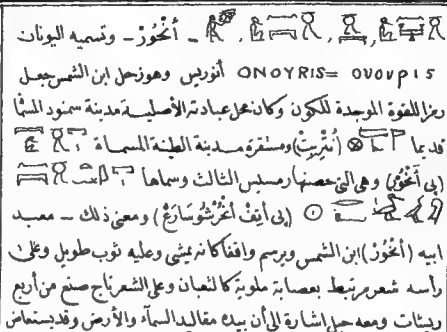 أنْحُورْ - وتسميه اليونان
ONOYRIS= ονουρις أنوريس وهو زحل ابن الشمس جعل
رمزا للقوة الموجدة للكون وكان محل عبادته الأصلية مدينة سمنود المسماة
قديما (انتريت) ومستقره مدينة الطينة المسماة
(پى أنحور) وهى التى حصنها رمسيس الثالث وسماها
(پى أيف أنحرشوسارع) ومعنى ذلك - معبد
ابيه (أنحور) ابن الشمس ويرسم واقفا كانه يمشى وعليه ثوب طويل وعلى
رأسه شعر مرتبط بعصابة ملوية كالثعبان وعلى الشعر تاج صنع من أربع
ريشات ومعه حبل اشارة الى أن بيده مقاليد السماء والأرض وقد يستعاض